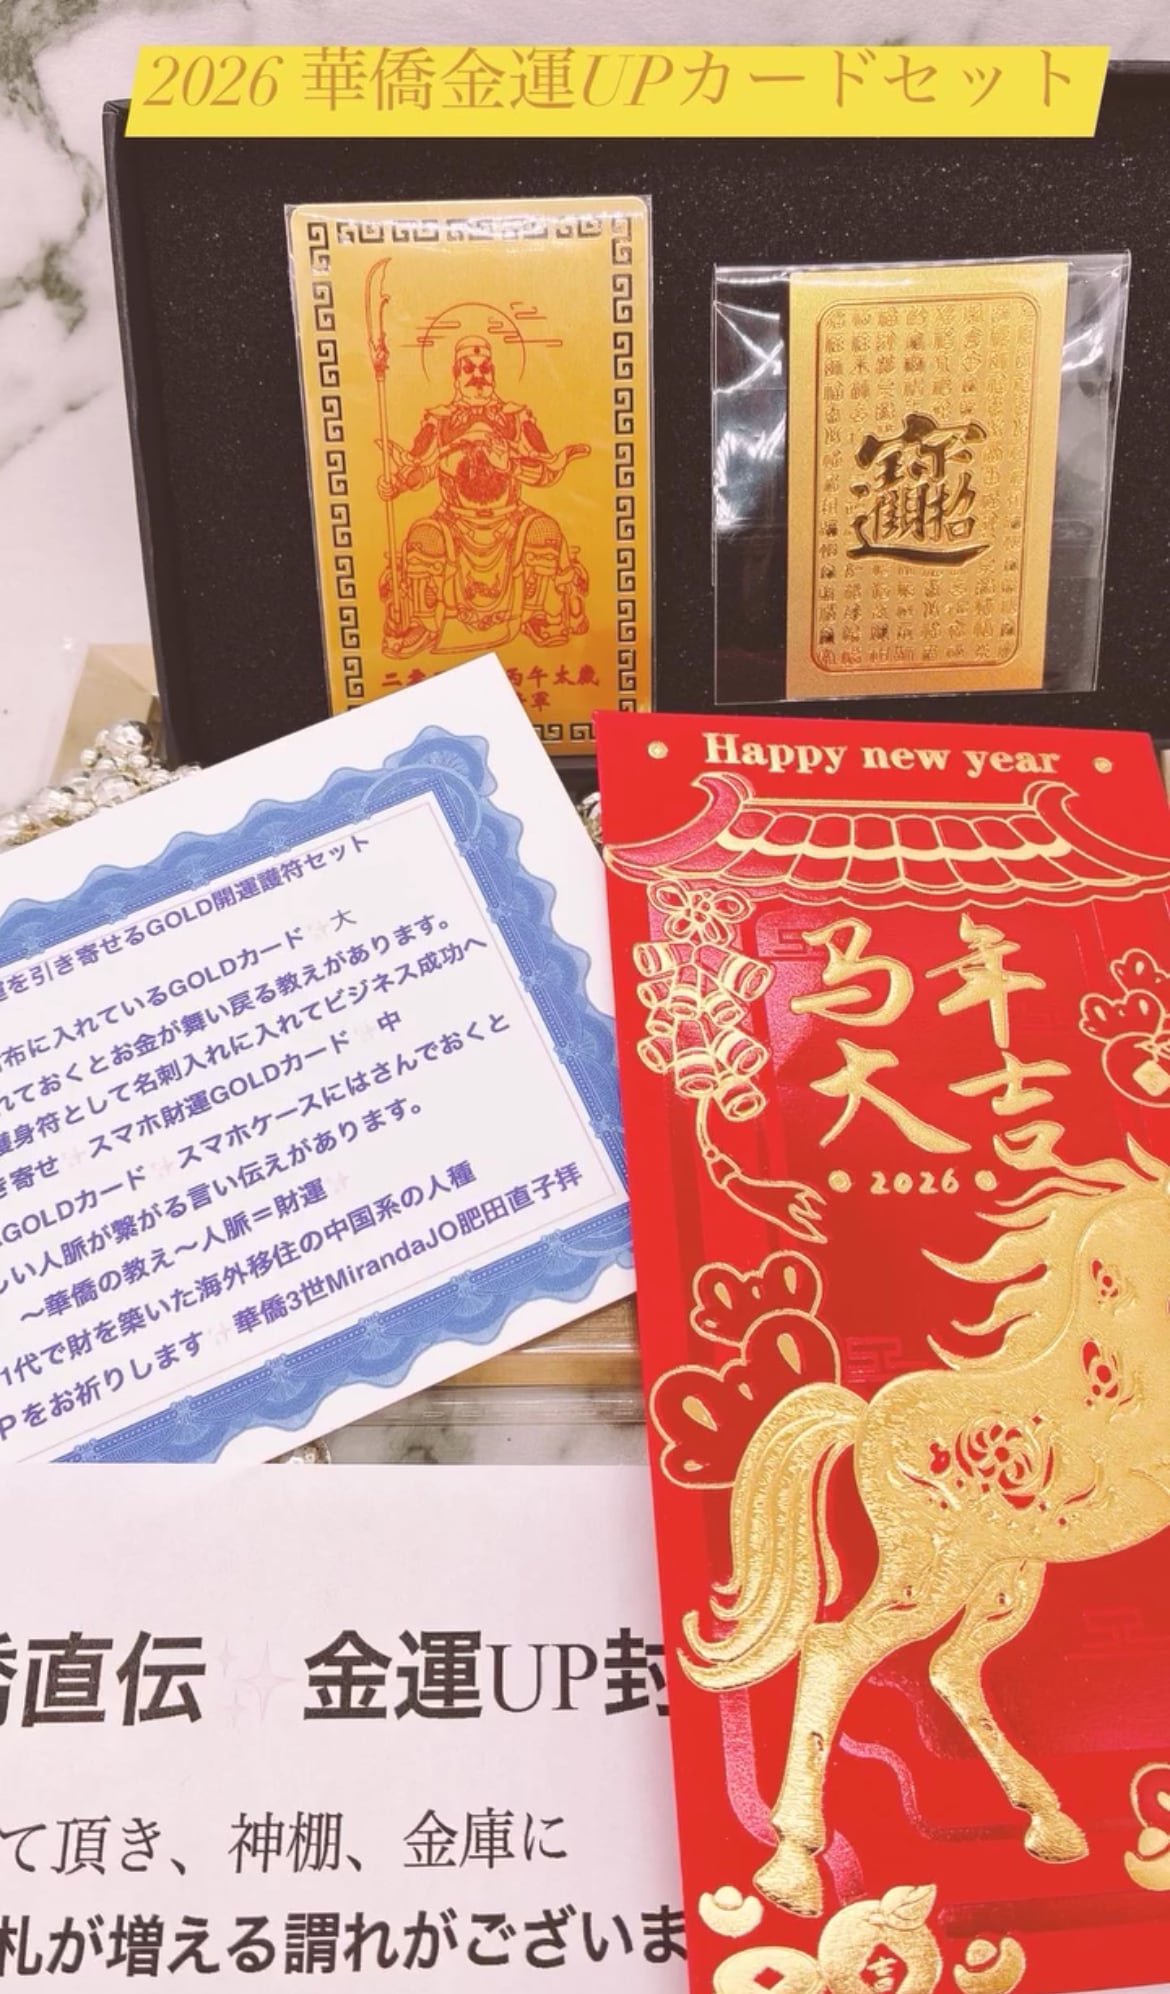 2026 華僑金運UPカードセット
招財進宝
丙午太歳
軍
Happy new year
马年
大吉
2026
吉
を引き寄せるGOLD開運護符セット
布に入れているGOLDカード✨大
れておくとお金が舞い戻る教えがあります。
護身符として名刺入れに入れてビジネス成功へ
き寄せ✨スマホ財運GOLDカード✨中
GOLDカード✨スマホケースにはさんでおくと
しい人脈が繋がる言い伝えがあります。
〜華僑の教え〜人脈＝財運✨
1代で財を築いた海外移住の中国系の人種
Pをお祈りします✨華僑3世MirandaJO肥田直子拝
直伝✨金運UP封
て頂き、神棚、金庫に
札が増える謂れがございま